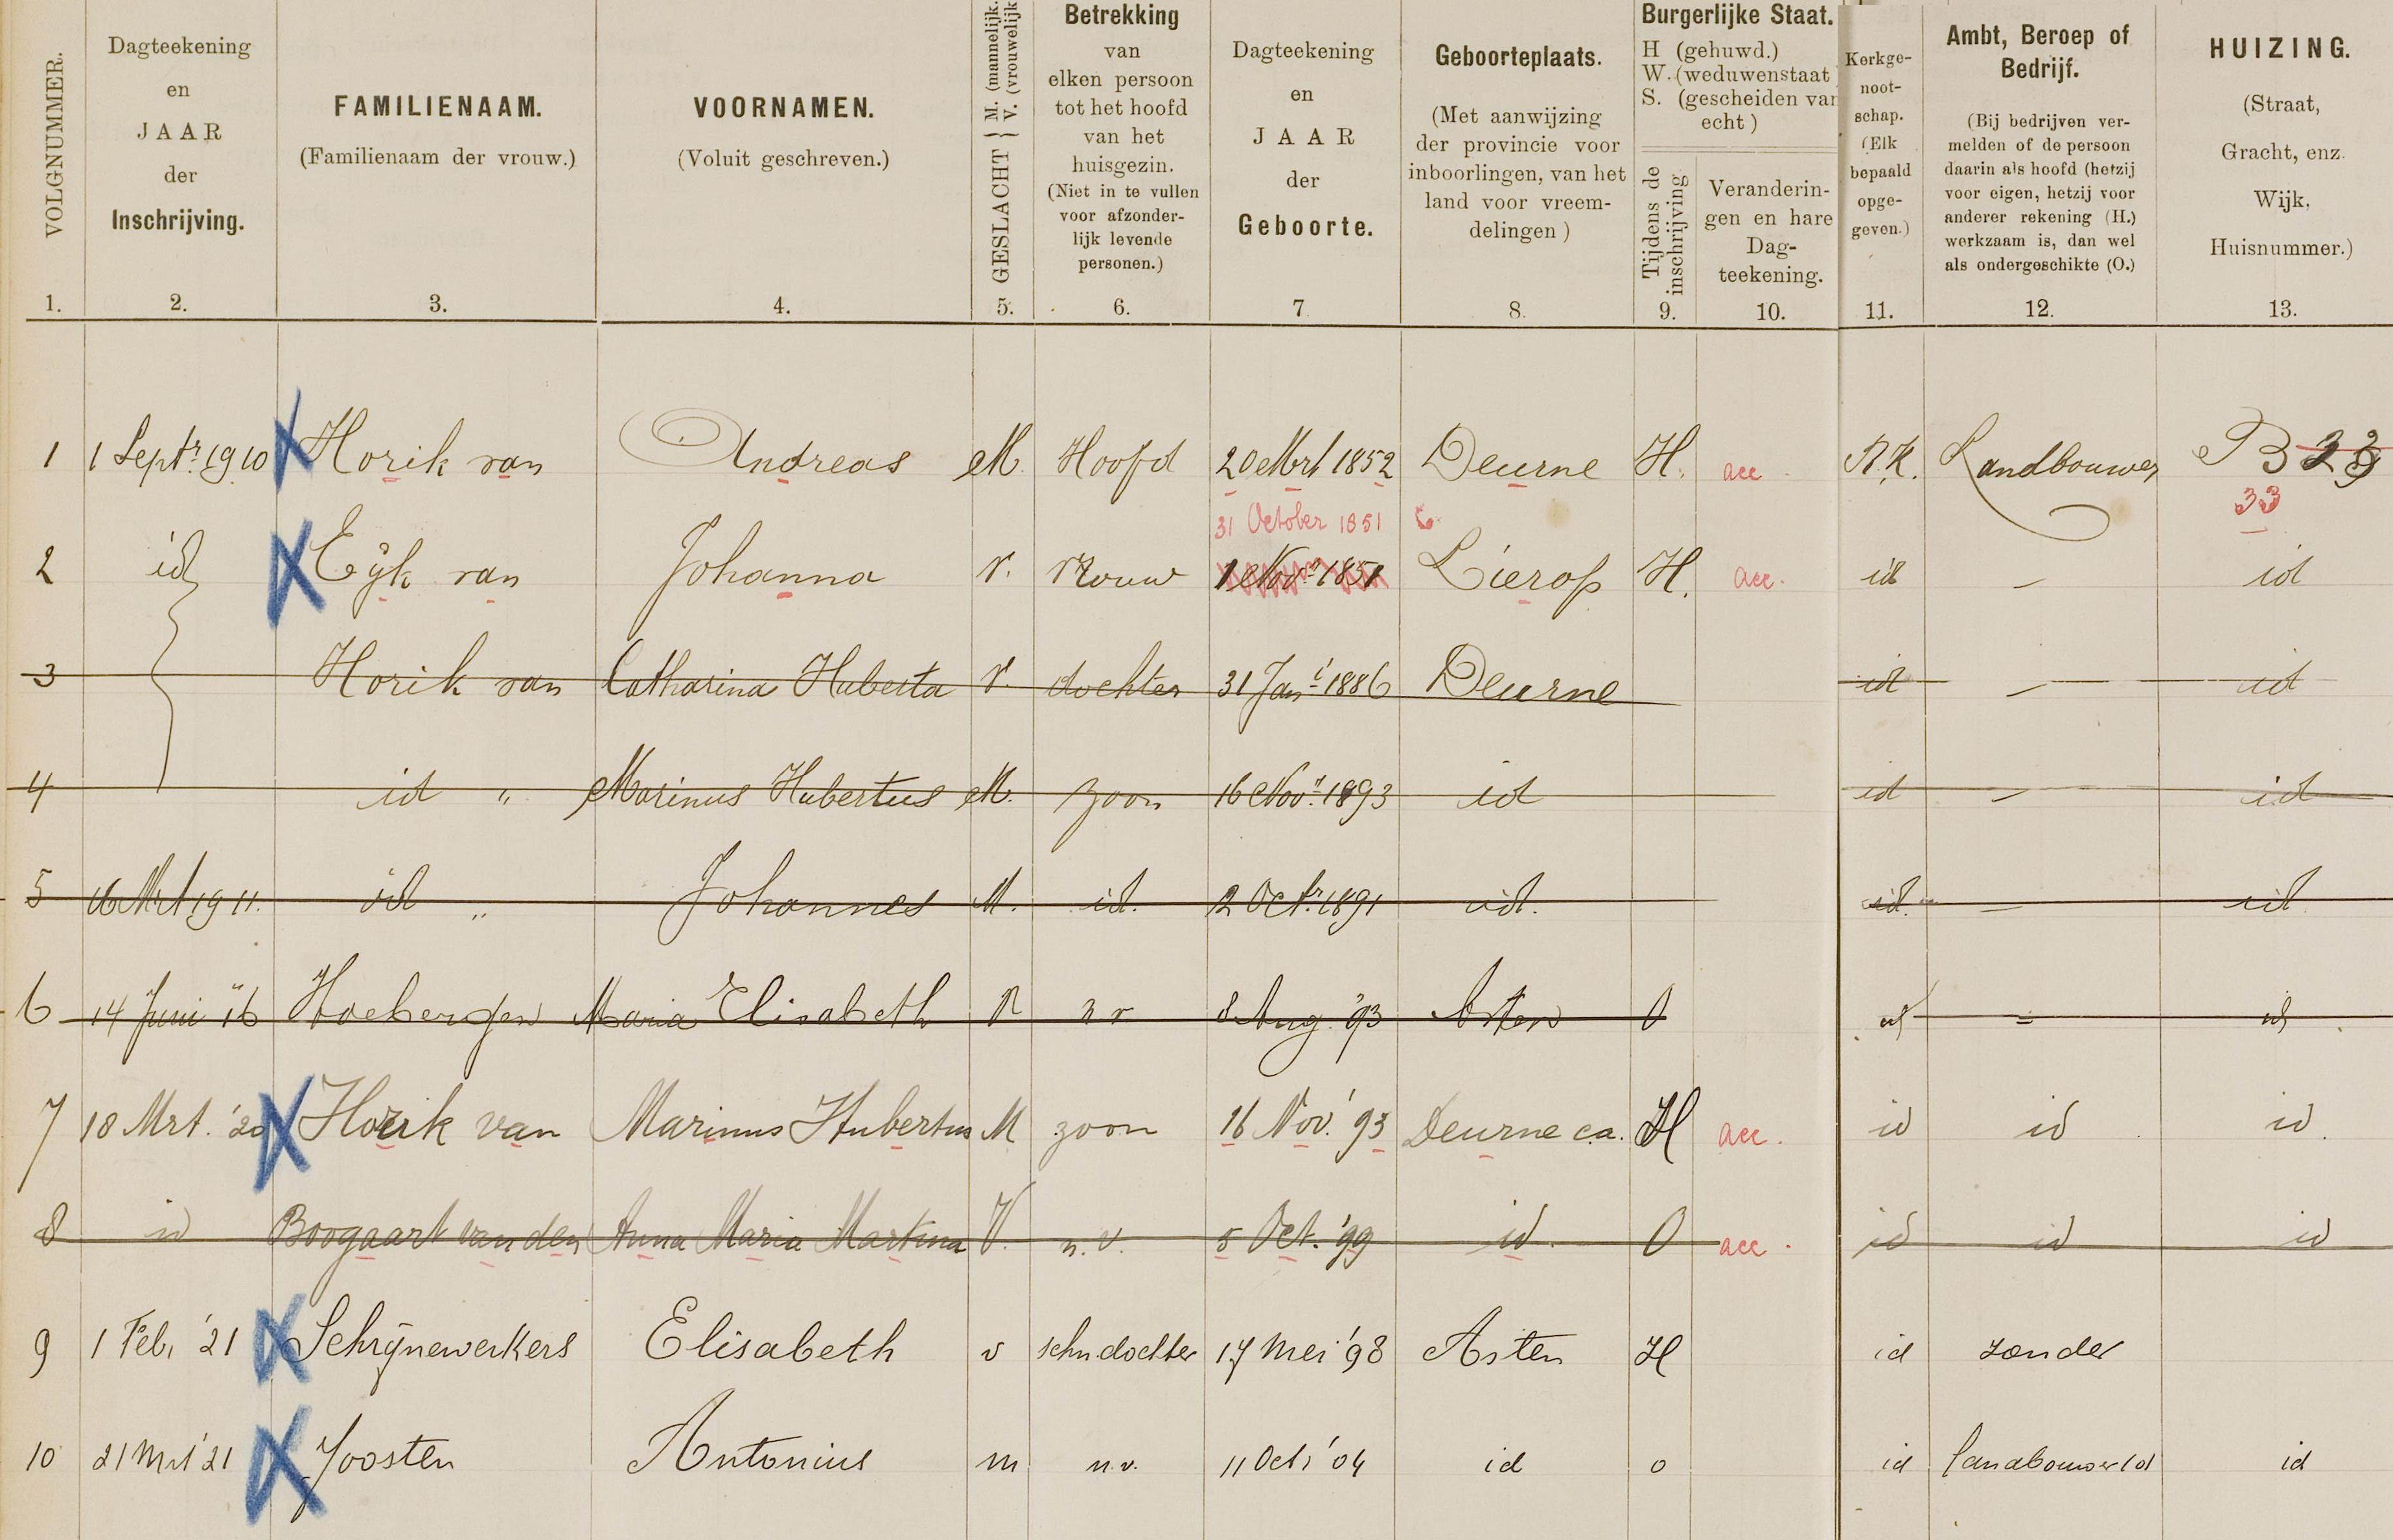 VOLGNUMMER.
Dagteekening
en
JAAR
der
Inschrijving.
FAMILIENAAM.
(Familienaam der vrouw.)
VOORNAMEN.
(Voluit geschreven.)
GESLACHT { M. (mannelijk.
V. (vrouwelijk
Betrekking
van
elken persoon
tot het hoofd
van het
huisgezin.
(Niet in te vullen
voor afzonder-
lijk levende
personen.)
Dagteekening
en
JAAR
der
Geboorte.
Geboorteplaats.
(Met aanwijzing
der provincie voor
inboorlingen, van het
land voor vreem-
delingen)
Burgerlijke Staat.
H (gehuwd.)
W. (weduwenstaat
S. (gescheiden van
echt)
Tijdens de
inschrijving
Veranderin-
gen en hare
Dag-
teekening.
Kerkge-
noot-
schap.
(Elk
bepaald
opge-
geven.)
Ambt, Beroep of
Bedrijf.
(Bij bedrijven ver-
melden of de persoon
daarin als hoofd (hetzij
voor eigen, hetzij voor
anderer rekening (H.)
werkzaam is, dan wel
als ondergeschikte (O.)
HUIZING.
(Straat,
Gracht, enz.
Wijk,
Huisnummer.)
1. 2. 3. 4. 5. 6. 7. 8. 9. 10. 11. 12. 13.
1 1 Septr. 1910 Horik van Andreas M Hoofd 20 Mrt 1852 Deurne H. acc. R.K. Landbouwer B
31 October 1851 33
2 id Eijk van Johanna V. Vrouw 1 Novr 1851 Lierop H. acc. id - id
3 Horik van Catharina Huberta V. dochter 31 Jani 1886 Deurne id - id
4 id " Marinus Hubertus M. zoon 16 Novr. 1893 id id - id
5 16 Mrt 1911. id " Johannes M. id. 2 Octr. 1891 id. id. - id
6 14 Juni '16 Hoebergen Maria Elisabeth V n v 8 Aug. '93 Asten O id - id
7 18 Mrt. '20 Horik van Marinus Hubertus M zoon 16 Nov. '93 Deurne ca. H acc. id id id.
8 id Boogaart van den Anna Maria Martina V. n.v. 5 Oct. '99 id. O acc. id id id
9 1 Feb. '21 Schrijnewerkers Elisabeth v schndochter 17 Mei '98 Asten H id zonder
10 21 Mrt '21 Joosten Antonius m n.v. 11 Oct. '04 id o id id